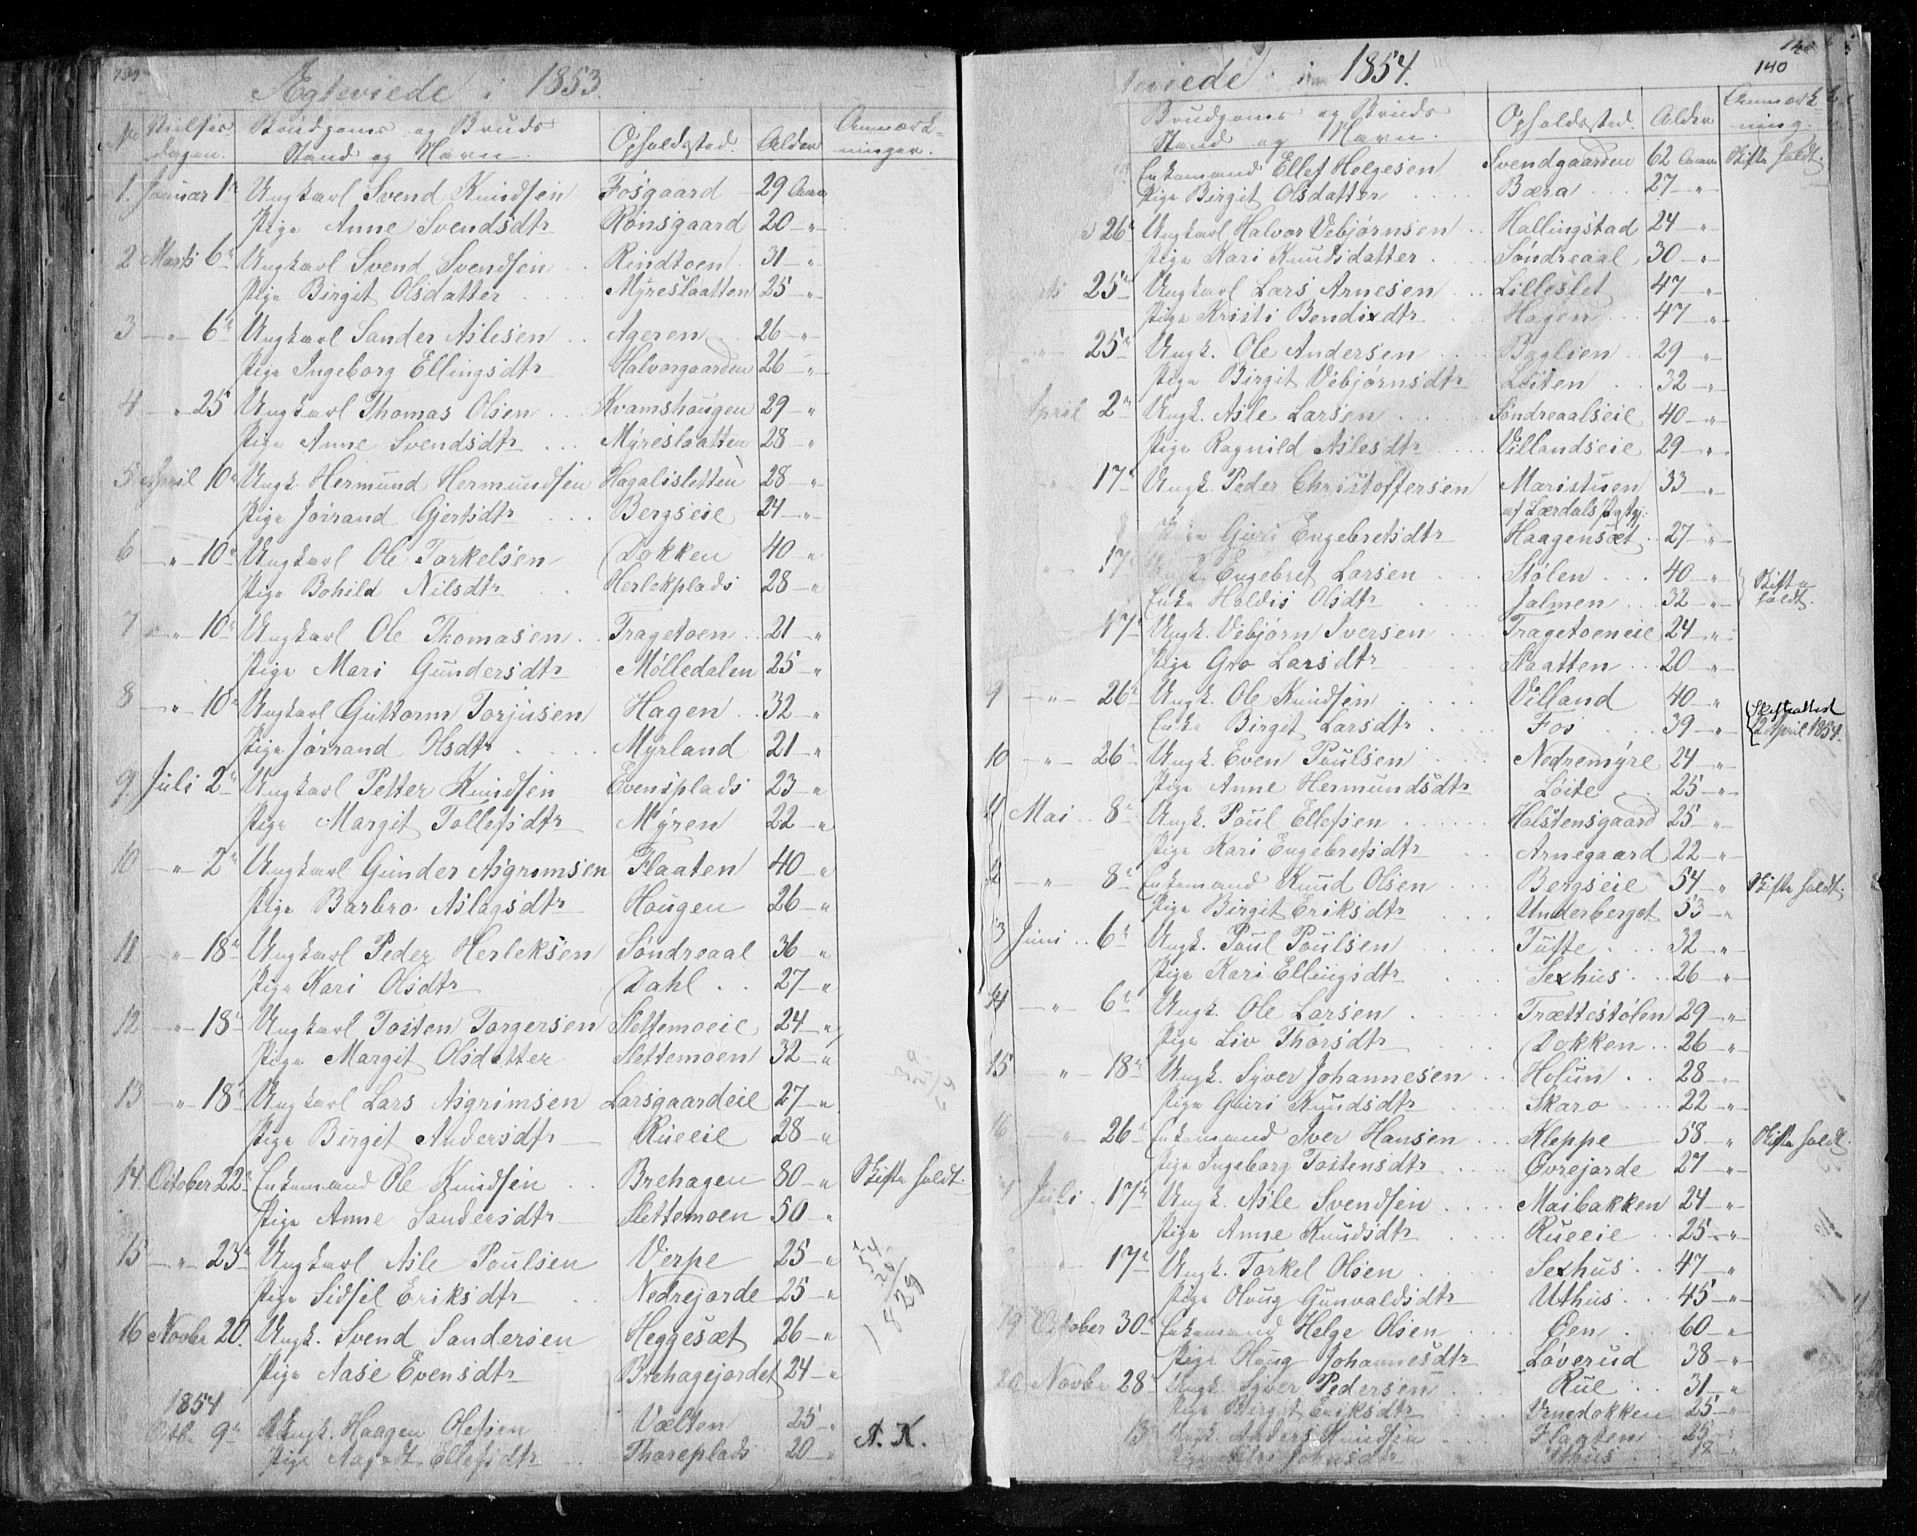 Ægteviede i 1853.
No Vielses dagen. Brudgoms og Bruds Stand og Navn. Opholdssted. Alder Anmærk- ninger.
1. Januar 1ste Ungkarl Svend Knudsen Fosgaard 29 Aar
Pige Anne Svendsdtr Rønsgaard 20 — "
2 Marts 6te Ungkarl Svend Svendsen Rindtoen 31 — "
Pige Birgit Olsdatter Myreslaatten 25 — "
3 — " 6te Ungkarl Sander Aslesen Ageren 26 — "
Pige Ingeborg Ellingsdtr Halvorgaarden 26 — "
4 — " 25 Ungkarl Thomas Olsen Kvamshougen 29 — "
Pige Anne Svendsdtr Myreslaatten 28 — "
5 April 10de Ungk. Hermund Hermundsen Hagalisletten 28 — "
Pige Jørrand Gjertsdtr Bergseie 24 — "
6 — " 10de Ungkarl Ole Torkelsen Dokken 40 — "
Pige Bohild Nilsdtr Herlekplads 28 — "
7 — " 10de Ungkarl Ole Thomasen Tragetoen 21 — "
Pige Mari Gundersdtr Mølledalen 25 — "
8 — " 10de Ungkarl Guttorm Torjusen Hagen 32 — "
Pige Jørrand Olsdtr Myrland 21 — "
9 Juli 2den Ungkarl Petter Knudsen Evensplads 23 — "
Pige Margit Tollefsdtr Myren 22 — "
10 — " 2den Ungkarl Gunder Asgrimsen Flaaten 40 — "
Pige Barbro Aslagsdtr Hougen 26 — "
11 — " 18de Ungkarl Peder Herleksen Søndreaal 36 — "
Pige Kari Olsdtr Dahl 27 — "
12 — " 18de Ungkarl Tosten Torgersen Slettemoeie 24 — "
Pige Margit Olsdatter Slettemoen 32 — "
13 — " 18de Ungkarl Lars Asgrimsen Larsgaardeie 27 — "
Pige Birgit Andersdtr Rueeie 28 — "
14. October 22de Enkemand Ole Knudsen Brehagen 80 — " Skifte holdt.
Pige Anne Sandersdtr Slettemoen 50 — "
15 — " 23de Ungkarl Asle Poulsen Verpe 25 — "
Pige Sidsel Eriksdtr Nedrejorde 25 — "
16 Novbr 20. Ungk. Svend Sandersen Heggesæt 26 — "
Pige Aase Evensdtr Brehagejordet 24 — "
1854
Octbr 9de Ungk. Haagen Olesen Vælten 25 — "
Pige Aagodt Ellefsdtr Thoreplads 20 — " A. K.
teviede i 1854.
140
Brudgoms og Bruds Stand og Navn. Opholdssted. Alder Anmærk ning.
Enkemand Ellef Helgesen Svendgaarden 62 Aar Skifte holdt.
Pige Birgit Olsdatter Bæra 27 — "
" 26de Ungkarl Halvor Vebjørnsen Hallingstad 24 — "
Pige Kari Knudsdatter Søndreaal 30 — "
25de Ungkarl Lars Arnesen Lilleslet 47 — "
Pige Kristi Bendixdtr Hagen 47 — "
25de Ungk. Ole Andersen Baglien 29 — "
Pige Birgit Vebjørnsdtr Løiten 32 — "
April 2den Ungk. Asle Larsen Søndreaalseie 40 — "
Pige Ragnild Aslesdtr Villandseie 29 — "
17de Ungk. Peder Christoffersen Maristuen 33 — "
af Lærdals Pgtj.
Pige Guri Engebretsdtr Haagensæt 27 — "
17de Engebret Larsen Stølen 40 — " Skifte
Enke Haldis Olsdtr Jalmen 32 — " holdt.
17de Ungk. Vebjørn Iversen Tragetoeneie 24 — "
Pige Gro Larsdtr Slaatten 20 — "
9 — " 26de Ungk. Ole Knudsen Villand 40 — "
Enke Birgit Larsdtr Fos 39 — " Skifteattest 12 April 1854.
10 — " 26de Ungk. Even Poulsen Nedremyre 24 — "
Pige Anne Hermundsdtr Løite 25 — "
11 Mai 8de Ungk. Poul Ellefsen Holstensgaard 25 — "
Pige Kari Engebretsdtr Arnegaard 22 — "
12 — " 8de Enkemand Knud Olsen Bergseie 54 " Skifte holdt.
Pige Birgit Eriksdtr Underberget 53 — "
13 Juni 6te Ungk. Poul Poulsen Tufte 32 — "
Pige Kari Ellingsdtr Sexhus 26 — "
14 — " 6te Ungk. Ole Larsen Trættestølen 29 — "
Pige Liv Thorsdtr Dokken 26 — "
15 — " 18de Ungk. Syver Johannesen Holun 28 — "
Pige Guri Knudsdtr Skaro 22 — "
16 " 26de Enkemand Iver Hansen Kleppe 58 — " Skifte holdt.
Pige Ingeborg Tostensdtr Øvrejorde 27 — "
17 Juli 17de Ungk. Asle Svendsen Maibakken 24 — "
Pige Anne Knudsdtr Rueeie 25 — "
" 17de Ungk. Torkel Olsen Sexhus 47 — "
Pige Houg Gunvaldsdtr Uthus 45 — "
19 October 30te Enkemand Helge Olsen Øen 60 — "
Pige Houg Johannesdtr Løverud 38 — "
20 Novbr 28de Ungk. Syver Pedersen Rul 31 — "
Pige Birgit Eriksdtr Vnnedokken 25 — "
13 Ungk. Anders Knudsen Flaaten 25
Pige Johnsdtr Uthus 18